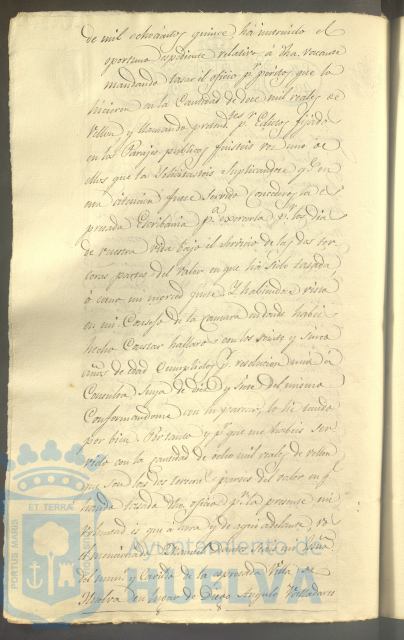 de mil ochocientos quince ha instruido el
oportuno expediente relativo á dha. vacante
mandando tasar el oficio pr. peritos, que lo
hicieron en la Cantidad de doce mil reales de
Vellon y llamando pretendtes. pr. Edictos fijados
en los Parajes publicos fuisteis vos uno de
ellos que la Solicitasteis suplicandome qe. en
su atencion fuese servido concederos la es
presada Escribania pa. exercerla pr. los dias
de vuestra vida bajo el servicio de las dos ter
ceras partes del valor en que ha sido tasada
ó como mi merced fuese. Y habiendose visto
en mi Consejo de la Camara en donde habeis
hecho Constar hallaros con los veinte y cinco
años de edad Cumplidos, pr. resolucion mia á
Consulta suya de diez y siete del mismo
Conformandome con su parecer, lo he tenido
por bien. Por tanto y pr. que me habeis ser
vido con la cantidad de ocho mil reales de vellon
que son las dos terceras partes del valor en q.
ha sido tasado dho. oficio pr. la presente mi
voluntad es que ahora y de aqui adelante
Escribano del
del num. y Cavildo de la espresada Villa de
Huelva en lugar de Diego Angulo Valladares
PORTUS MARIS ET TERRAE CUSTODIA
Ayuntamiento de
HUELVA